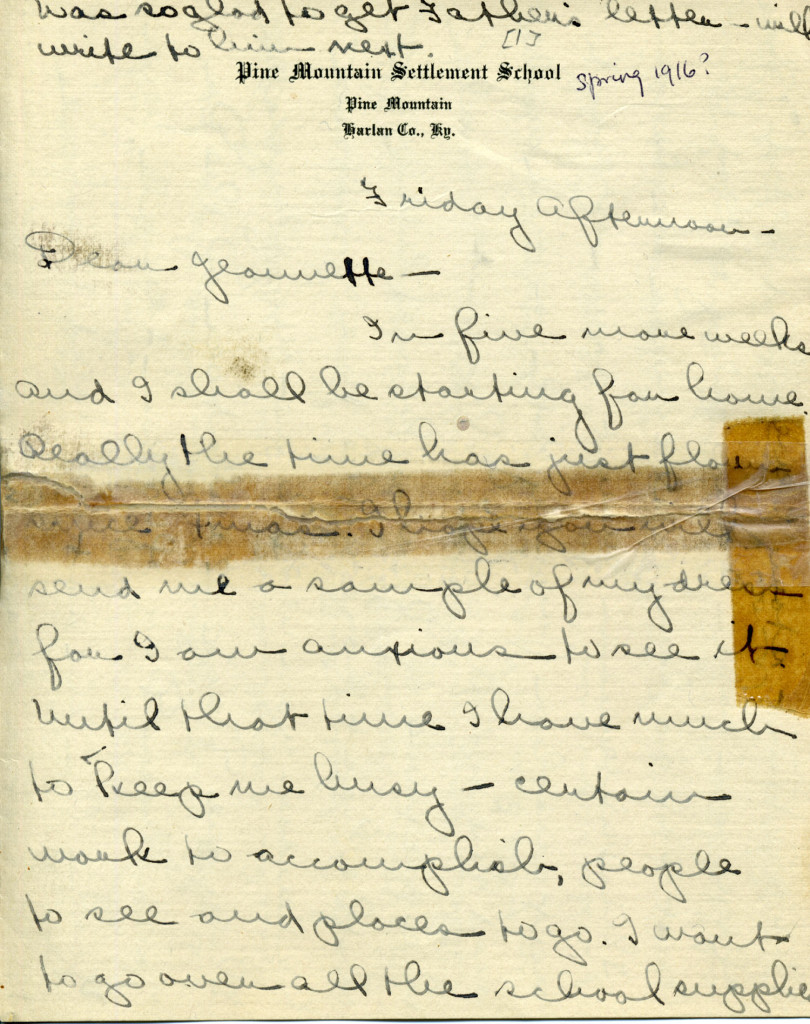 was so glad to get Father's letter - will
write to him next.
[1]
Pine Mountain Settlement School
spring 1916?
Pine Mountain
Harlan Co., Ky.
Friday Afternoon -
Dear Jeannette -
In five more weeks
and I shall be starting for home.
Really the time has just flown
since Xmas. I hope you will
send me a sample of my dress
for I am anxious to see it.
Until that time I have much
to keep me busy - certain
work to accomplish, people
to see and places to go. I want
to go over all the school supplie